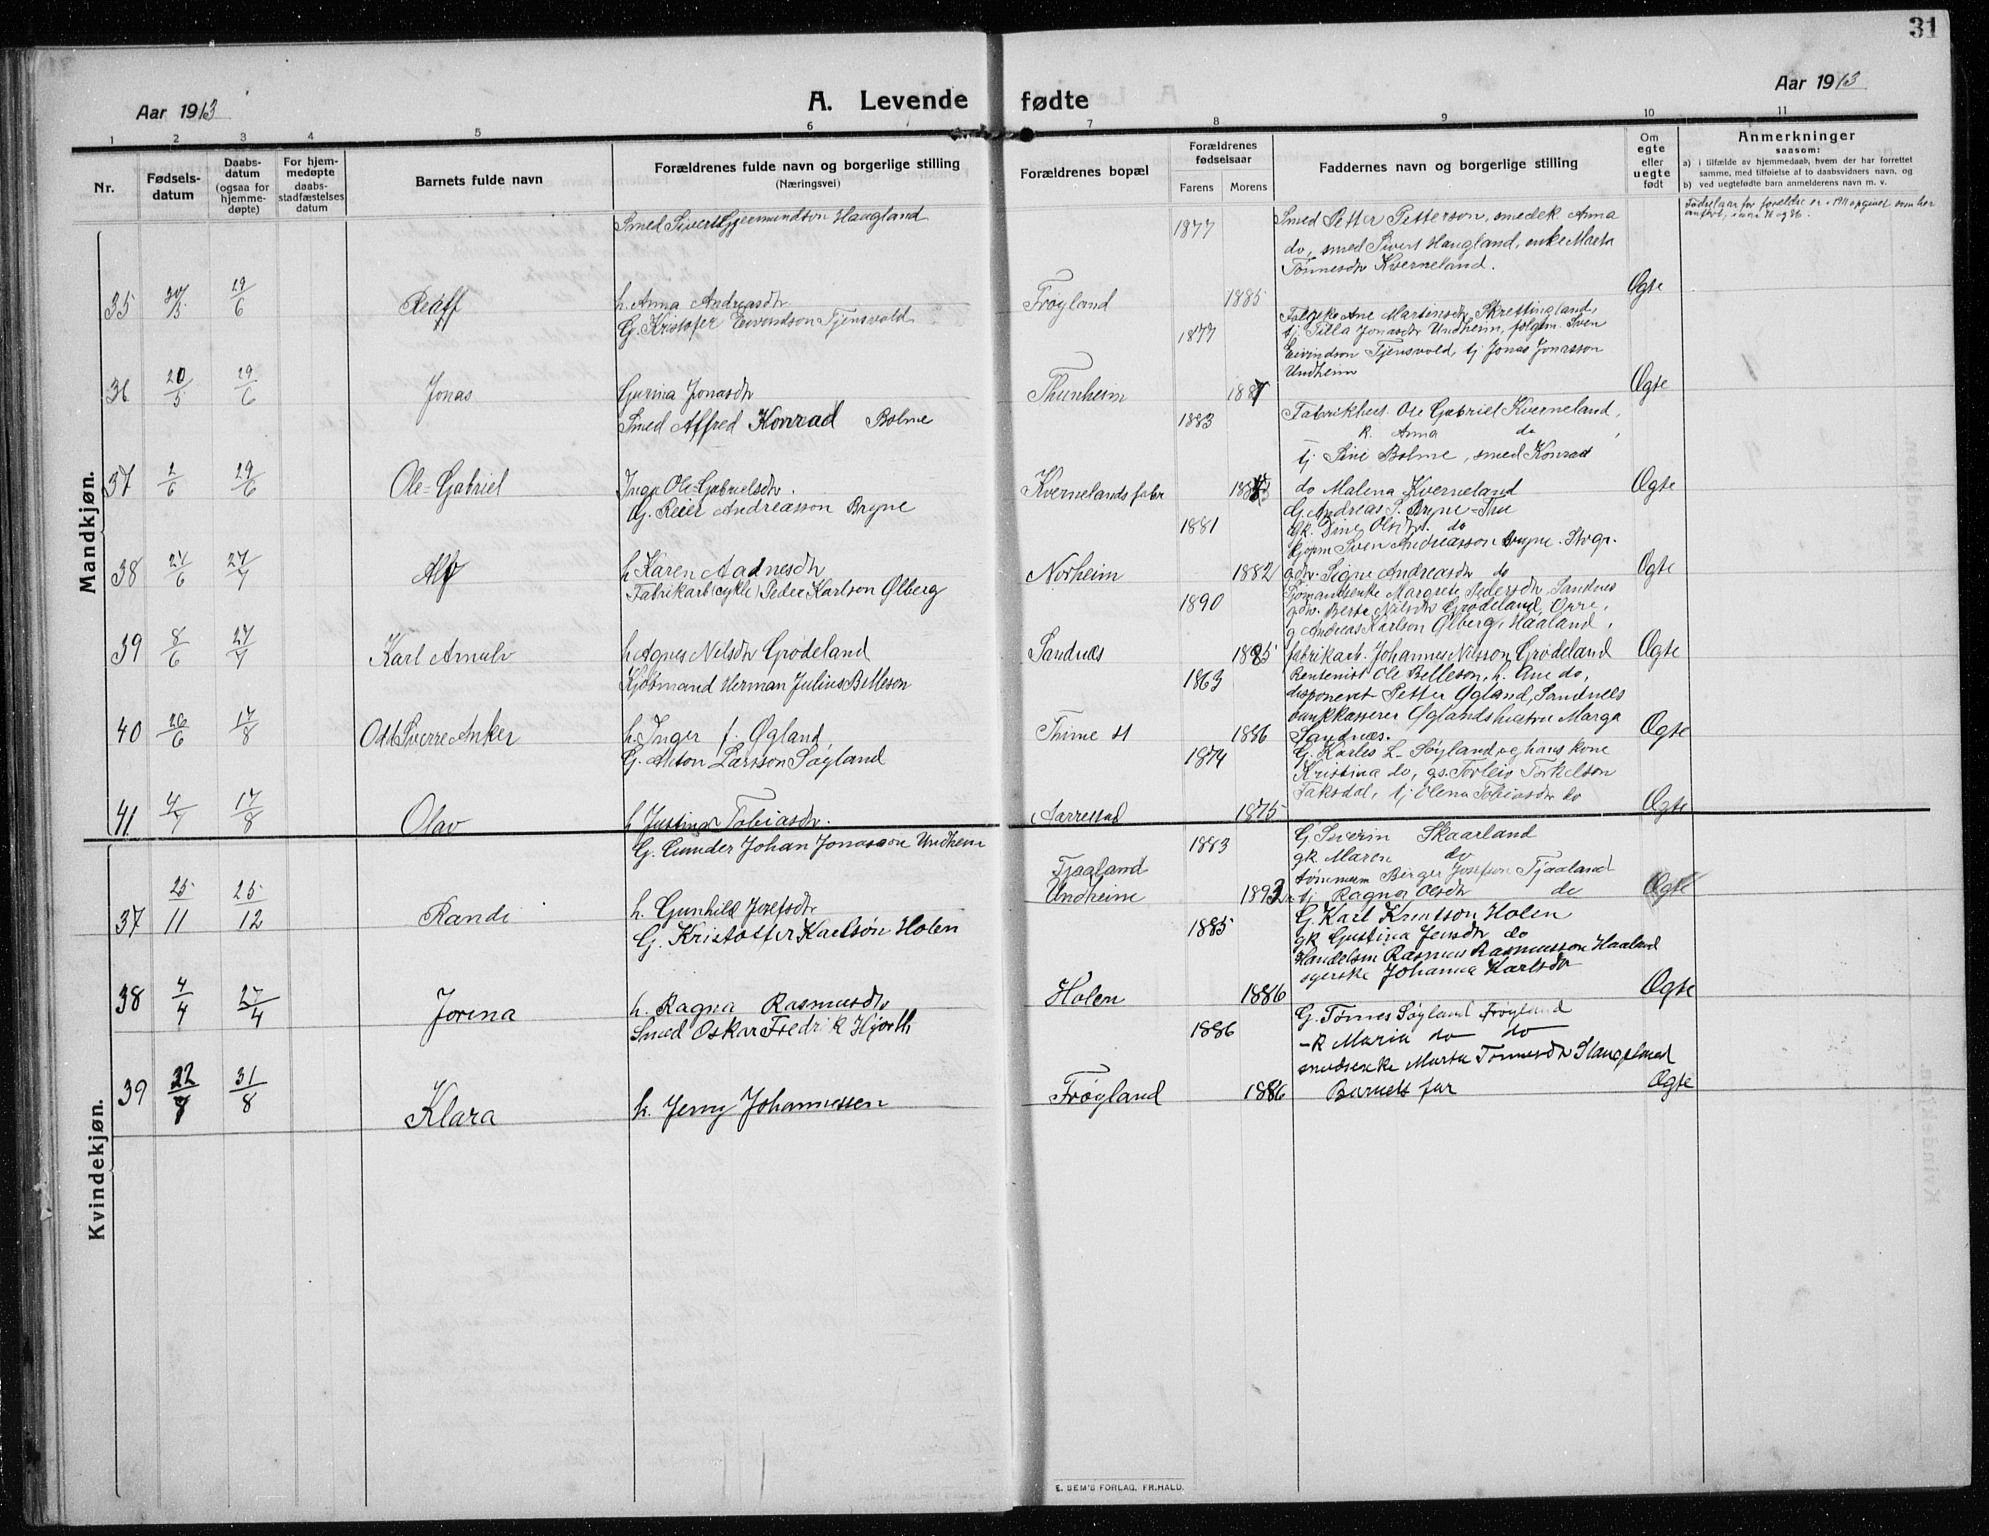 31
Aar 1913
A. Levende fødte
Aar 1913
1 2 3 4 5 6 7 8 9 10 11
Nr.
Fødsels-
datum
Daabs-
datum
(ogsaa for
hjemme-
døpte)
For hjem-
medøpte
daabs-
stadfæstelses
datum
Barnets fulde navn
Forældrenes fulde navn og borgerlige stilling
(Næringsvei)
Forældrenes bopæl
Forældrenes
fødselsaar
Farens Morens
Faddernes navn og borgerlige stilling
Om
egte
eller
uegte
født
Anmerkninger
saasom:
a) i tilfælde av hjemmedaab, hvem der har forrettet
samme, med tilføielse af to daabsvidners navn, og
b) ved uegtefødte barn anmelderens navn m. v.
Mandkjøn.
Smed Sivert Gjermundson Haugland
1877
Smed Petter Petterson, smedek Anna
do, smed Sivert Haugland, enke Marta
Tønnesdtr Kverneland.
35 30/5 29/6
h. Anna Andreasdtr
Frøyland 1885 Ægte
G. Kristofer Eivindson Tjensvold
1877
Ane Martinsdtr Skrettingland,
tj Tilla Jonasdtr Undheim, folgem. Sven
Eivindson Tjensvold, tj Jonas Jonasson
Undheim
36 20/5 29/6 Jonas Gurina Jonasdtr
Thunheim 1887 Ægte
Smed Alfred Konrad Bolme
1883
Ole Gabriel Kverneland,
k. Anna do
tj Sine Bolme, smed Konrad
37 2/6 29/6 Ole=Gabriel Inga Ole=Gabrielsdtr.
Kvernelands fabr do Malena Kverneland Ægte
G. Reier Andreasson Bryne
1881
G. Andreas S. Bryne-Thu
gk. Olsdtr. do
Sven Andreasson Bryne.
38 24/6 27/7 Alf h Karen Aadnesdtr
Norheim 1882 gdtr. Signe Andreasdtr do Ægte
Fabrikarb (cykle) Peder Karlson Ølberg
1890
Margrete Pedersdtr, Sandnes
gdtr. Berta Nilsdtr Grødeland, Orre,
g Andreas Karlson Ølberg, Haaland,
39 8/6 27/7 Karl Arnulv h Agnes Nilsdtr Grødeland
Sandnæs 1885 fabrikarb. Johannes Nilsson Grødeland Ægte
Kjøbmand Herman Julius Belleson
1863
Rentenist Ole Belleson, h. Une do,
disponent Petter Øgland, Sandnes
bankkasserer Øglands hustru Marga
40 26/6 17/8 Odd Sverre Anker h. Inger f. Øgland
Thime st 1886 Sandnæs. Ægte
G. Anton Larsson Søyland
1874
G. Karles L. Søyland og hans kone
Kristina do, gs. Torleiv Torkelson
Taksdal, tj Elena Tobiasdtr do
41 4/7 17/8 Olav h Justina Tobiasdtr.
Aarrestad 1875 Ægte
Kvindekjøn.
G. Gunder Johan Jonasson Undheim
1883
G. Severin Skaarland
gk Maren do
Birger Josefson Tjaaland
Tjaaland
37 25/11 25/12 Randi h. Gunhild Josefsdtr
Undheim 1892 tj Ragna Olsdtr do Ægte
G. Kristoffer Karlsøn Holen
1885
G. Karl Knutson Holen
gk Gustina Jensdtr do
Handelsm Rasmus Rasmusson Haaland
syerske Johanna Karlsdtr
38 4/4 27/4 Jorina h. Ragna Rasmusdtr
Holen 1886 Ægte
Smed Oskar Fredrik Hjorth
1886
G. Tønnes Søyland Frøyland
-k Maria do do
smedsenke Marta Tønnesdtr
39 22/7 31/8 Klara h. Jenny Johannessen
Frøyland 1886 Barnets far Ægte
E. SEM'S FORLAG, FR.HALD.